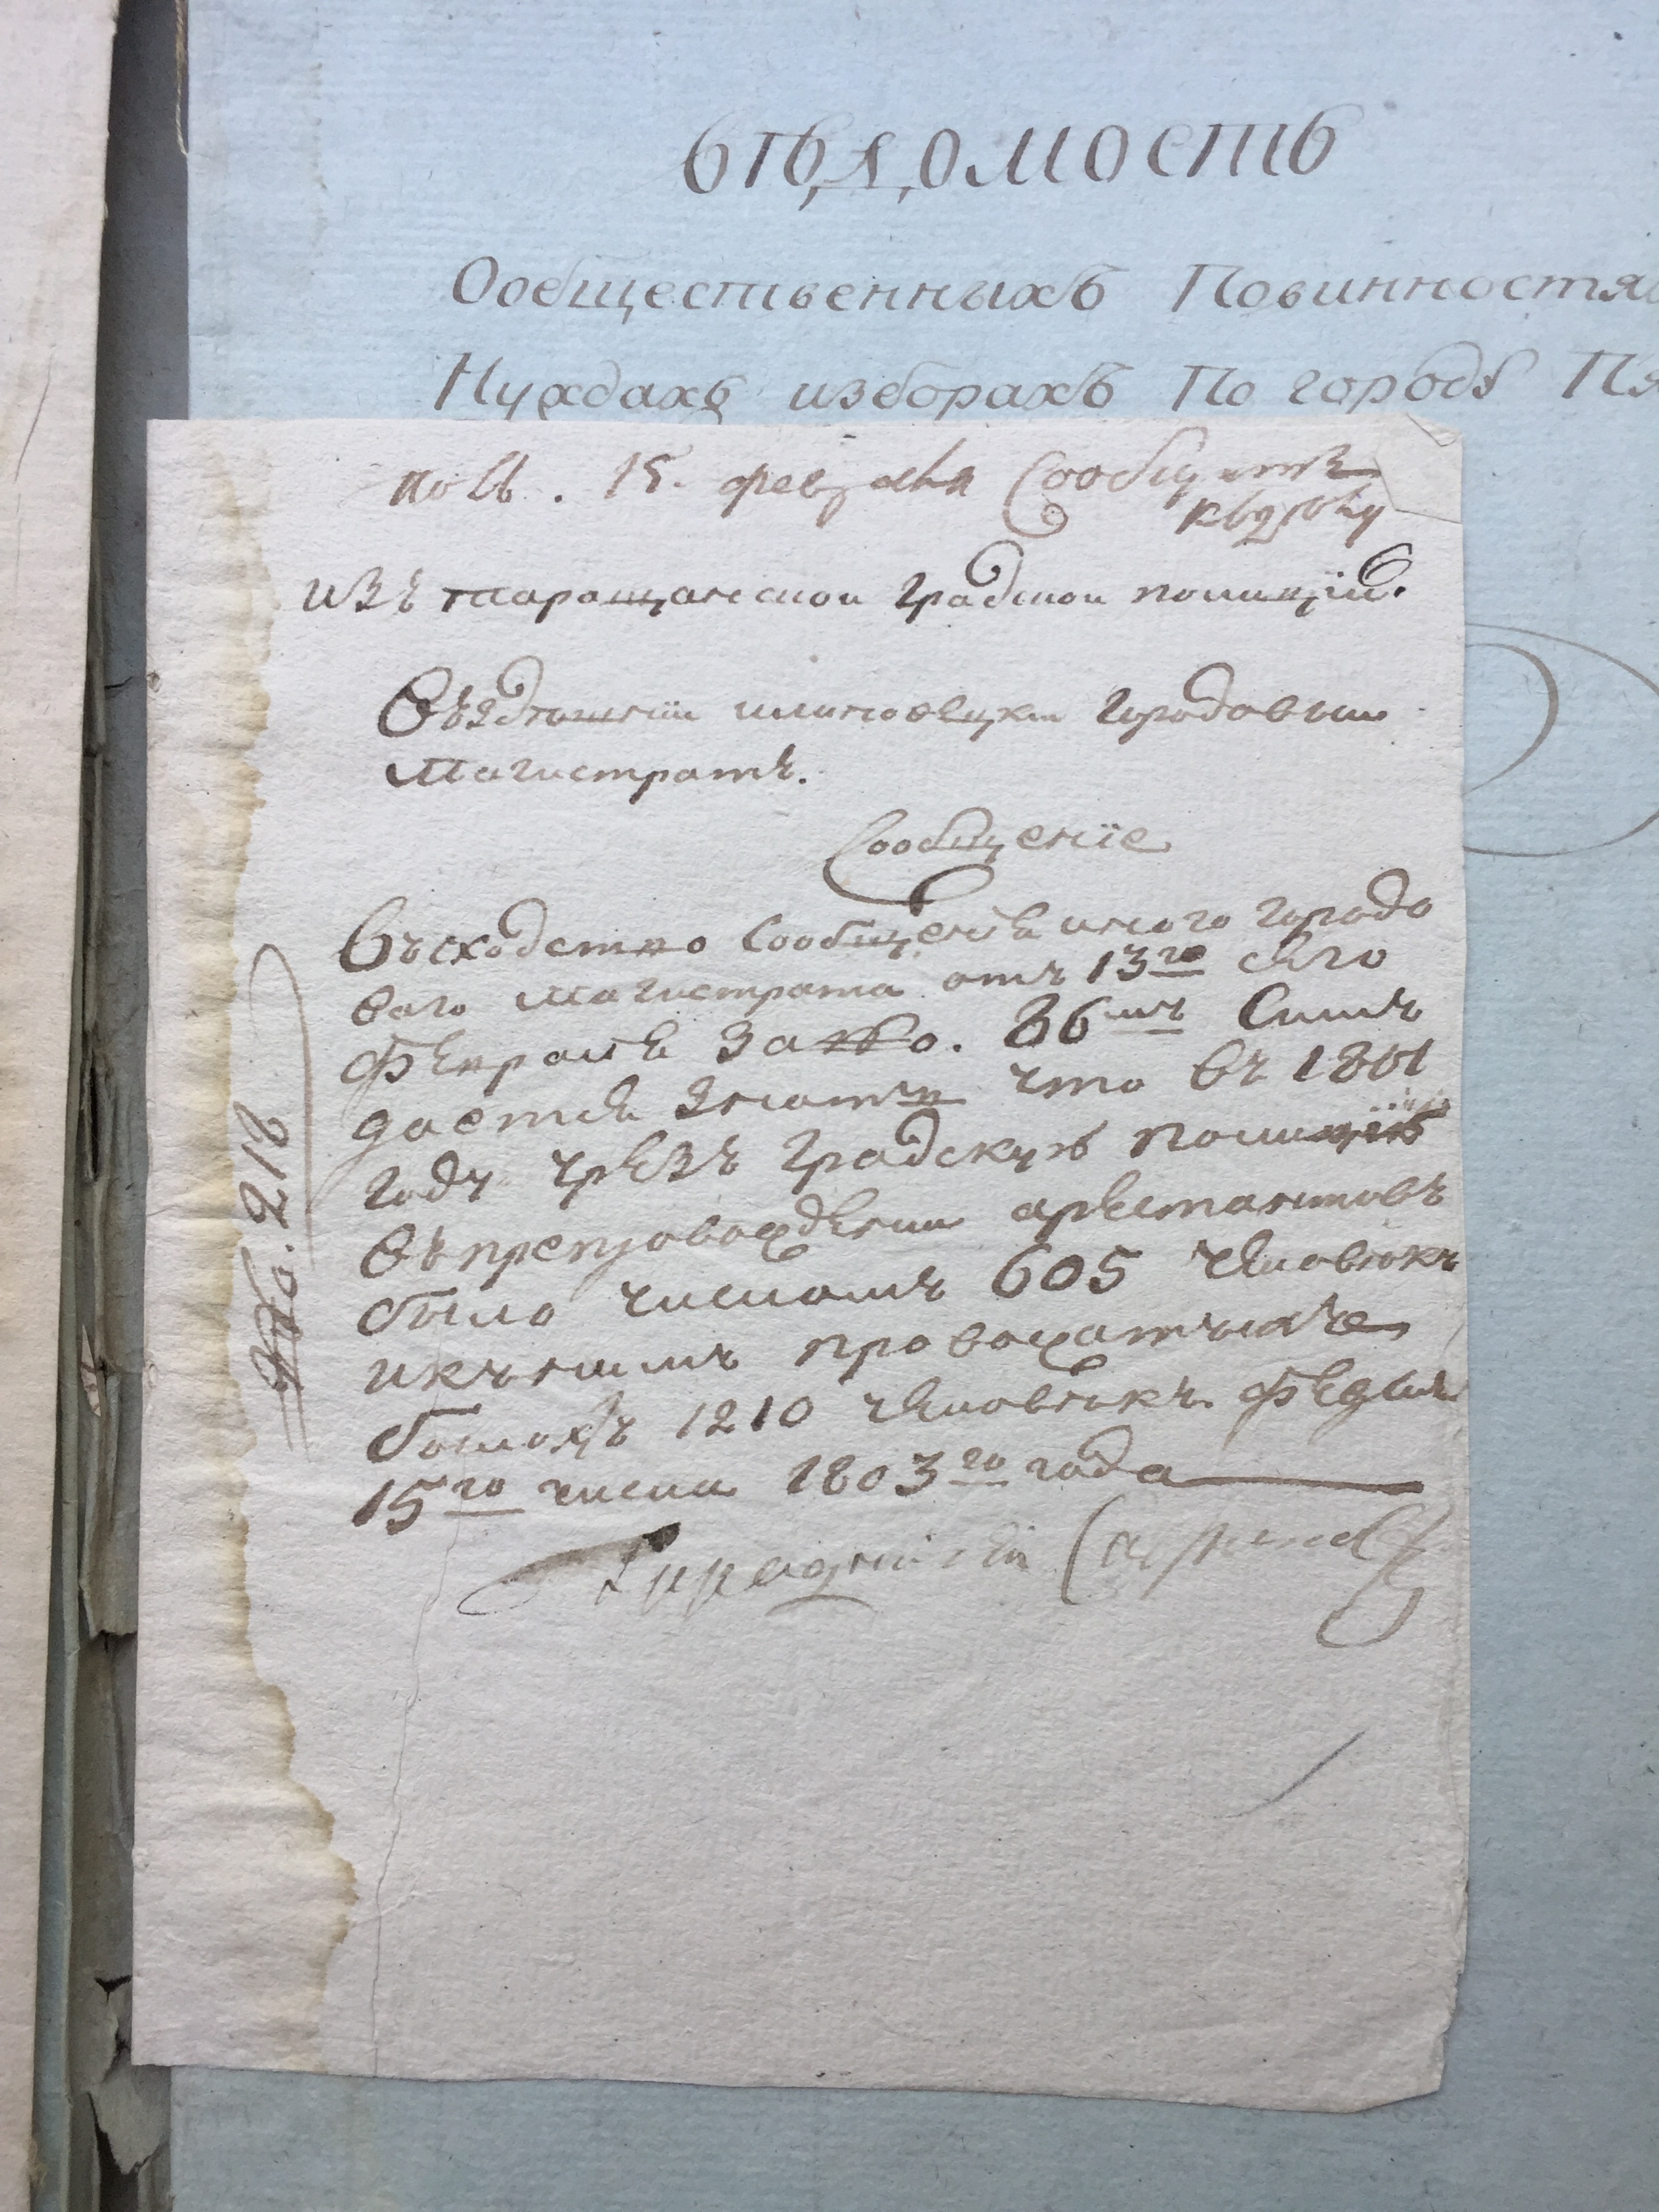 вѣдомость
Ообщественныхъ Повинностях
Нуждахъ изборахъ По городу Пя
15. февраля Сообщить
изъ таращанской градской полиции.
Въздешнїй городовый
Магистратъ.
Сообщенїе
Въсходство Сообщенія оного городо
вого Магистрата отъ 13го сего
Февраля за №о. 36мъ Симъ
дается знать что въ 1801
году чрезъ градскую полицїю
въпрепровождении арестантовъ
было числомъ 605 человѣкъ
икънимъ провожатыхъ
1210 человѣкъ. Февраля
15го числа 1803го года
№о. 218